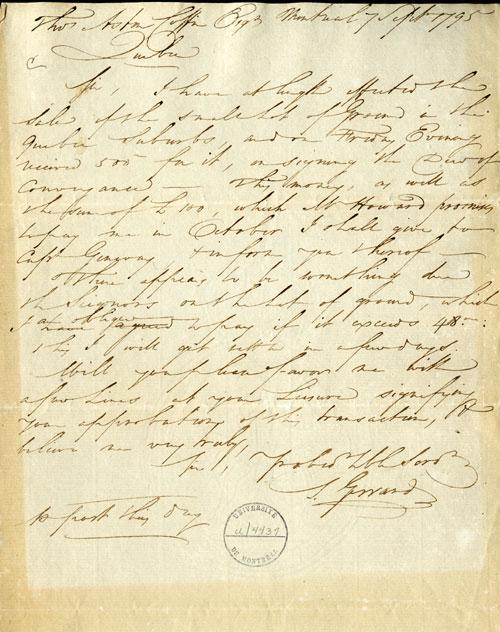 Thos Aston Coffin Esqr Montreal 7 Sept 1795
Quebec
Sir, I have at length effected the
sale of the small lot of Ground in the
Quebec Suburbs, and on Friday Evening
received 500 for it, on signing the Deed of
Conveyance — This money, as well as
the sum of £100, which Mr Howard promises
to pay me in October I shall give to
Capt & inform you thereof —
There appears to be something due
the Seignors on the lot of ground, which
I am obliged to pay if it exceeds 48
this I will get settled in a few days.
Will you please favor me with
a few lines at your Leisure signifying
your approbation of this transaction, &
believe me very truly,
Sir, Your obed Hble Servt
S. Gerrard
p post this day
UNIVERSITÉ
U/4437
DE MONTRÉAL